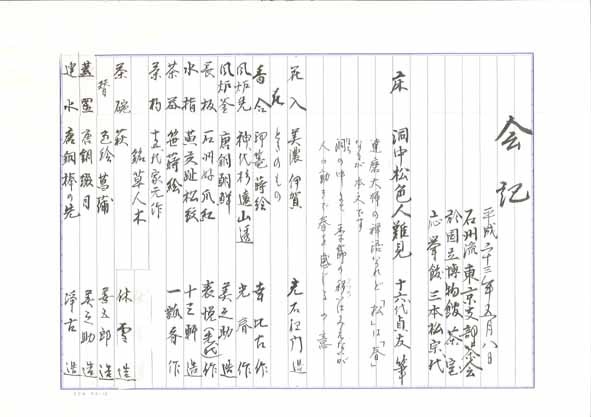 会記
平成二十三年五月八日
石州流東京支部茶会
於国立博物館 茶室
応挙館 三本松宗代
床 洞中松色人難見 十六代貞友筆
達磨大師の禅語 「松」は「春」
が本文です
洞の中 季節の移ろいはみえないが
人の動きで春を感じるの意
花入 美濃伊賀 造
花 ときのもの
香合 印籠蒔絵 幸比古作
風炉先 神代杉遠山透 光春作
風炉釜 唐銅朝鮮 美之助造
長板 石州好爪紅 表悦 作
水指 黄交趾松紋 十三軒造
茶器 笹蒔絵 一瓢斎作
茶杓 十五代家元作
銘 草人木
茶碗 萩 休雪造
替 色絵菖蒲 造
蓋置 唐銅 月 美之助造
建水 唐銅棒の先 浄古造